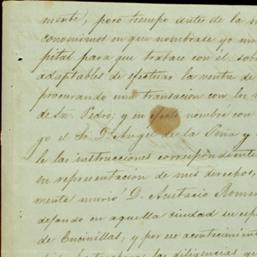 mente, poco tiempo antes de la
convenimos en que nombrase yo un
pital para que tratase con él sob
adaptables de efectuar la venta de
procurando una transacion con los
de Sn. Pedro; y en efecto nombré con
go el Sr. D. Angel de la Peña y
le las instrucciones correspondiente
en representacion de mis derechos,
mente murió D. Anastacio Rome
dejando en aquella ciudad su esp
de Encinillas, y por ese acontecimien
las diligencias que